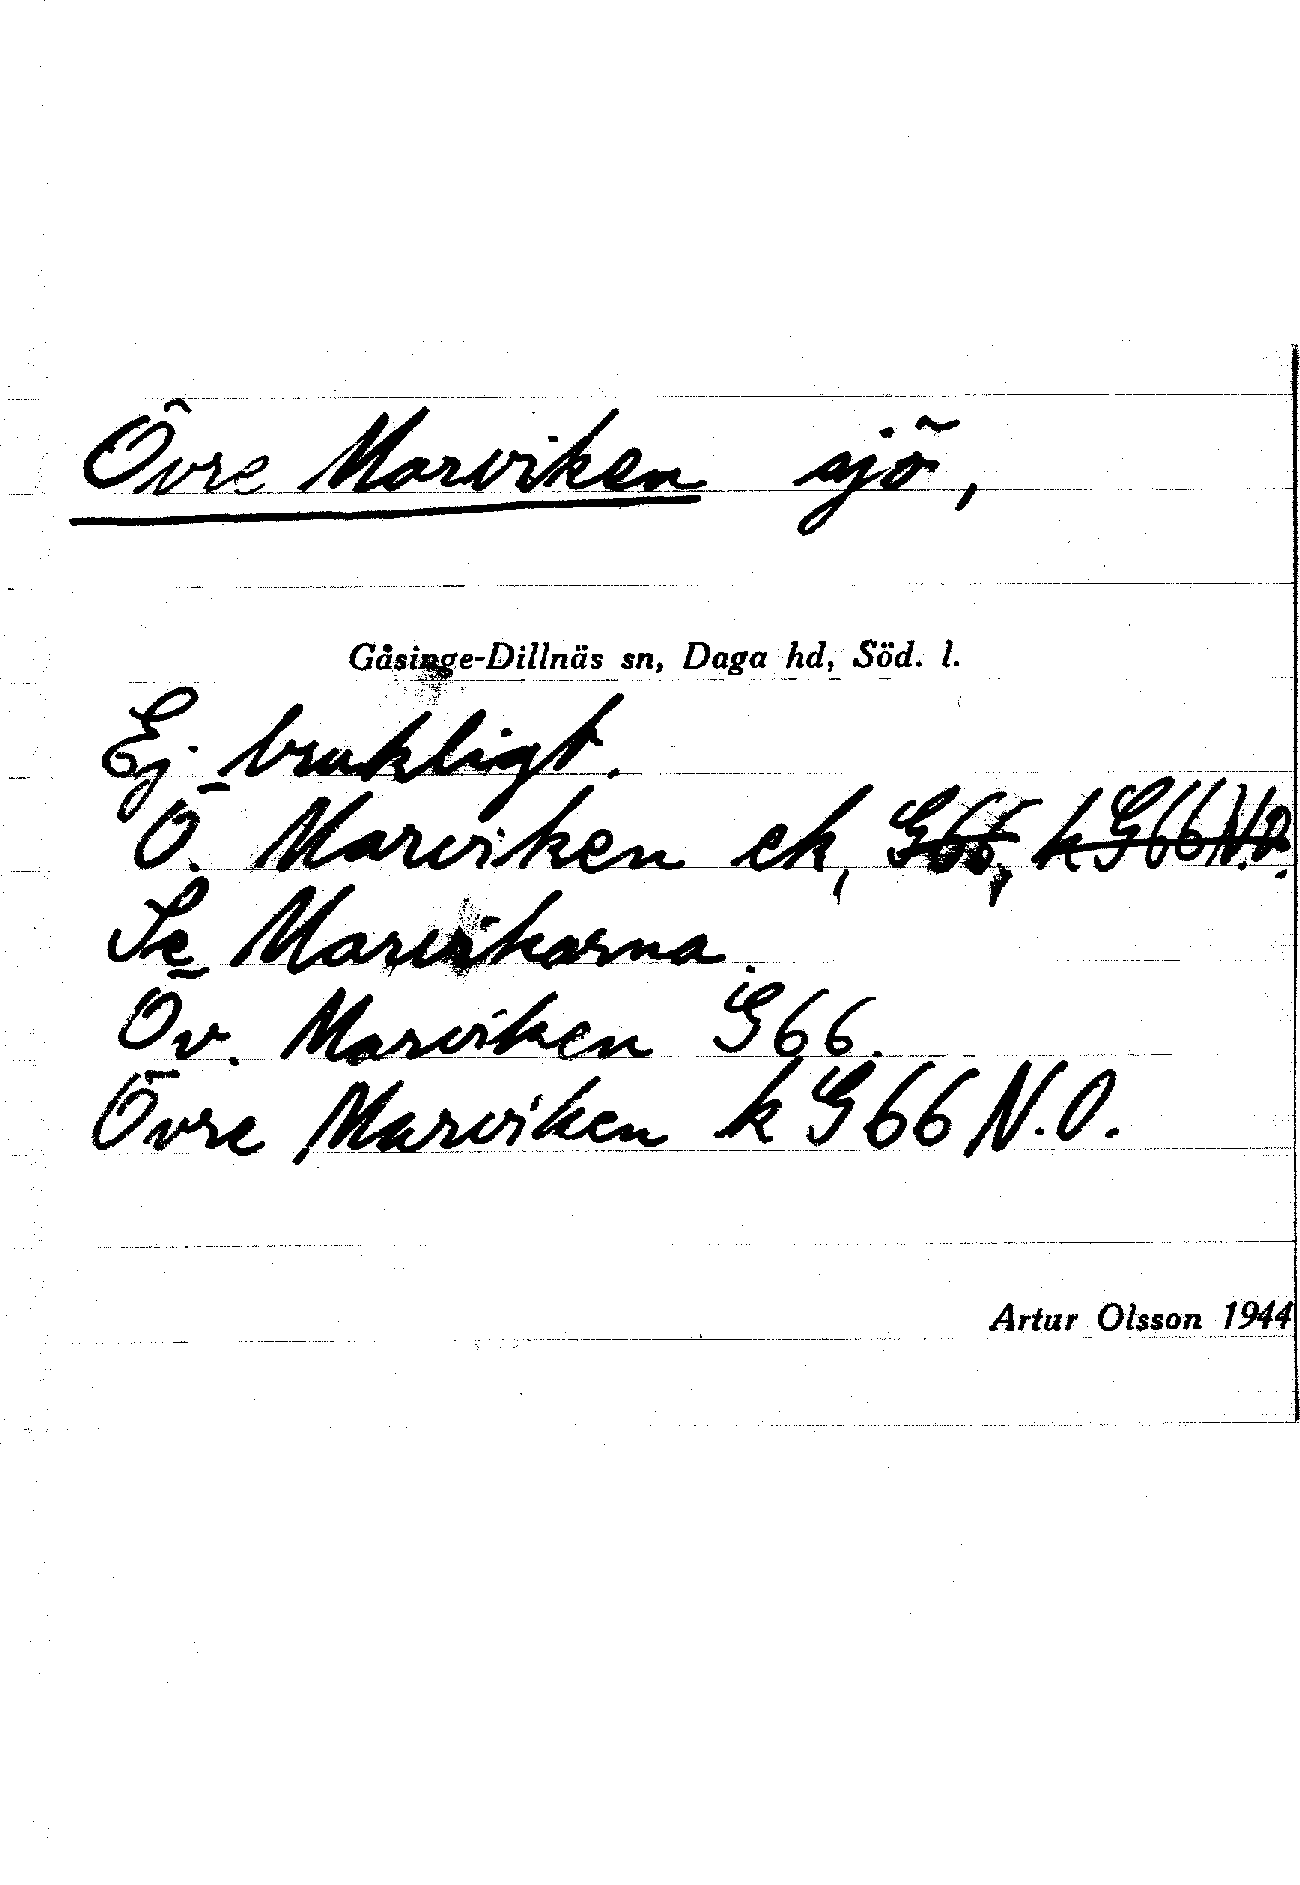 Övre Marviken sjö,
Gåsinge-Dillnäs sn, Daga hd, Söd. l.
Ej brukligt.
Ö. Marviken ek, G66, k G66 N.O.
Se Marvikarna.
Öv. Marviken G66.
Övre Marviken k G66 N.O.
Artur Olsson 1944